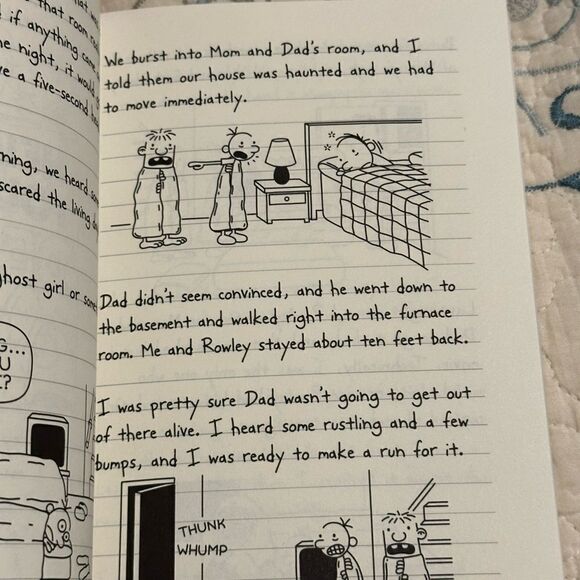 that room
if anything
night, it would
a five-second
we heard
scared the living
ghost girl or
We burst into Mom and Dad's room, and I
told them our house was haunted and we had
to move immediately.
Dad didn't seem convinced, and he went down to
the basement and walked right into the furnace
room. Me and Rowley stayed about ten feet back.
I was pretty sure Dad wasn't going to get out
of there alive. I heard some rustling and a few
bumps, and I was ready to make a run for it.
THUNK
WHUMP